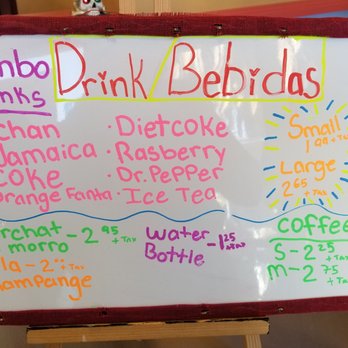 mbo Drink/Bebidas
nks
chan · Diet coke
Jamaica · Rasberry
Coke · Dr. Pepper
orange Fanta · Ice Tea
Small
1.99 + Tax
Large
2.65 + Tax
rchat - 2.95 + Tax
morro
la - 2.00 + Tax
hampange
water Bottle - 1.25 + tax
coffee
S - 2.25 + Tax
m - 2.75 + Tax